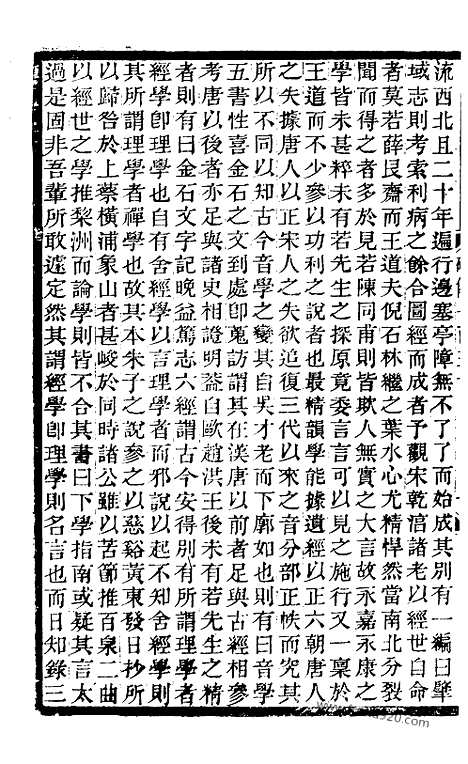 流西北且二十年遍行邊塞亭障無不了了而始成其別有一編曰肇
域志則考索利病之餘合圖經而成者予觀宋乾湻諸老以經世自命
者莫若薛艮齋而王道夫倪石林繼之葉水心尤精悍然當南北分裂
聞而得之者多於見若陳同甫則皆欺人無實之大言故永嘉永康之
學皆未甚粹未有若先生之探原竟委言言可以見之施行又一稟於
王道而不少參以功利之說者也最精韻學能據遺經以正六朝唐人
之失據唐人以正宋人之失欲追復三代以來之音分部正帙而究其
所以不同以知古今音學之變其自吳才老而下廓如也則有曰音學
五書性喜金石之文到處卽蒐訪謂其在漢唐以前者足與古經相參
考唐以後者亦足與諸史相證明蓋自歐趙洪王後未有若先生之精
者則有曰金石文字記晚益篤志六經謂古今安得別有所謂理學者
經學卽理學也自有舍經學以言理學者而邪說以起不知舍經學則
其所謂理學者禪學也故其本朱子之說參之以慈谿黃東發日抄所
以歸咎於上蔡橫浦象山者甚峻於同時諸公雖以苦節推百泉二曲
以經世之學推黎洲而論學則皆不合其書曰下學指南或疑其言太
過是固非吾輩所敢遽定然其謂經學卽理學則名言也而日知錄三